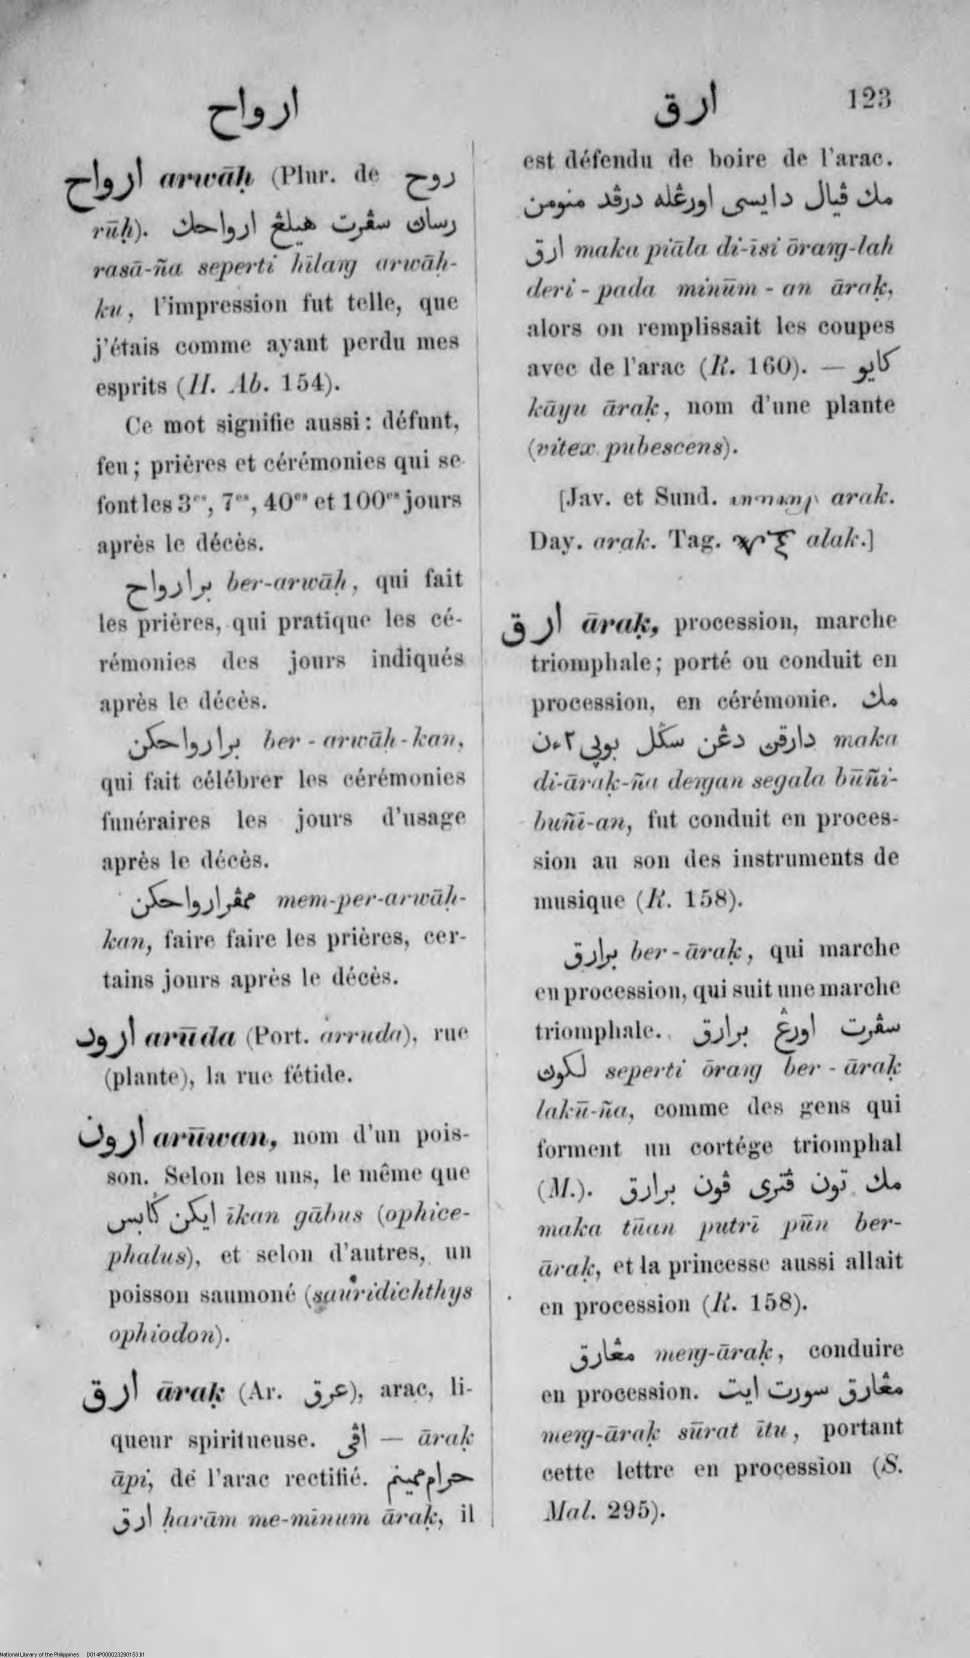 ارواح
ارق 123
ارواح arwāḥ (Plur. de روح
rūḥ). رسان سڤرت هيلڠ ارواحك
rasā-ña seperti hīlaŋg arwāḥ-
ku, l'impression fut telle, que
j'étais comme ayant perdu mes
esprits (H. Ab. 154).
Ce mot signifie aussi: défunt,
feu; prières et cérémonies qui se
font les 3es, 7es, 40es et 100es jours
après le décès.
برارواح ber-arwāḥ, qui fait
les prières, qui pratique les cé-
rémonies des jours indiqués
après le décès.
برارواحكن ber-arwāḥ-kan,
qui fait célébrer les cérémonies
funéraires les jours d'usage
après le décès.
ممڤرارواحكن mem-per-arwāḥ-
kan, faire faire les prières, cer-
tains jours après le décès.
ارود arūda (Port. arruda), rue
(plante), la rue fétide.
ارون arūwan, nom d'un pois-
son. Selon les uns, le même que
ايكن ݢابس īkan gābus (ophice-
phalus), et selon d'autres, un
poisson saumoné (sauridichthys
ophiodon).
ارق āraḳ (Ar. عرق), arac, li-
queur spiritueuse. اڤي — āraḳ
āpi, de l'arac rectifié. حرام ممينم
ارق ḥarām me-mīnum āraḳ, il
est défendu de boire de l'arac.
مك ڤيال دايسى اورڠله درڤد منومن
ارق maka piāla di-īsi ōraŋg-lah
deri-pada minūm-an āraḳ,
alors on remplissait les coupes
avec de l'arac (R. 160). — كايو
kāyu āraḳ, nom d'une plante
(vitex pubescens).
[Jav. et Sund. arak.
Day. arak. Tag. alak.]
ارق āraḳ, procession, marche
triomphale; porté ou conduit en
procession, en cérémonie. مك
دارقن دڠن سݢل بوڽي٢ءن maka
di-āraḳ-ña deŋgan segala būñi-
buñī-an, fut conduit en proces-
sion au son des instruments de
musique (R. 158).
برارق ber-āraḳ, qui marche
en procession, qui suit une marche
triomphale. سڤرت اورڠ برارق
لكون seperti ōraŋg ber-āraḳ
lakū-ña, comme des gens qui
forment un cortége triomphal
(M.). مك تون ڤترى ڤون برارق
maka tūan putrī pūn ber-
āraḳ, et la princesse aussi allait
en procession (R. 158).
مڠارق meŋg-āraḳ, conduire
en procession. مڠارق سورت ايت
meŋg-āraḳ sūrat ītu, portant
cette lettre en procession (S.
Mal. 295).
National Library of the Philippines